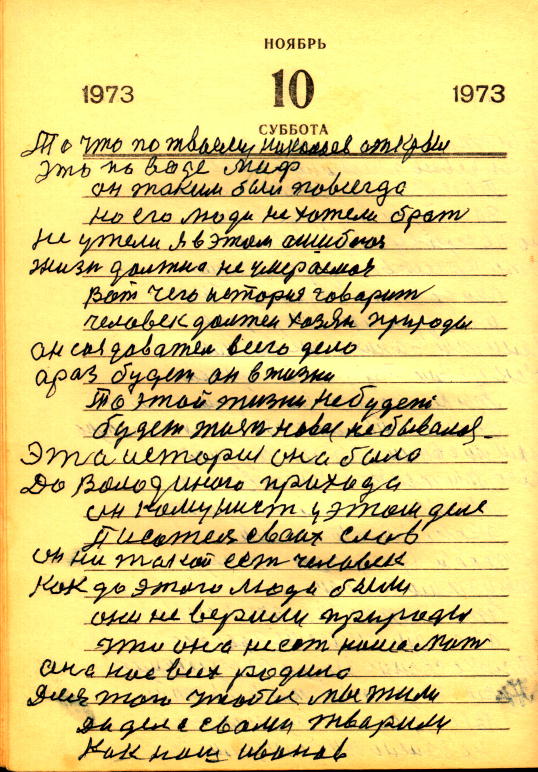 НОЯБРЬ
1973 10 1973
СУББОТА
То что по твоему николаев открыл
это по воде миф
он таким был повсегда
но его люди не хотели брат
не ужели я в этом ошибаюся
жизн должна не умераемоя
вот чего история говорит
человек должен хозян природы
он создовател всего дело
араз будет он в жизни
То этой жизни небудет
будет жизн новоя не бывалоя
Эта история она было
До Володиного прихода
он комунист у этом деле
Писател своих слов
он ни такой ест человек
Как до этого люди были
они не верили природы
что она несот наша мат
она нас всех родила
Для того чтобы мы жили
дела своми тварили
Как наш иванов